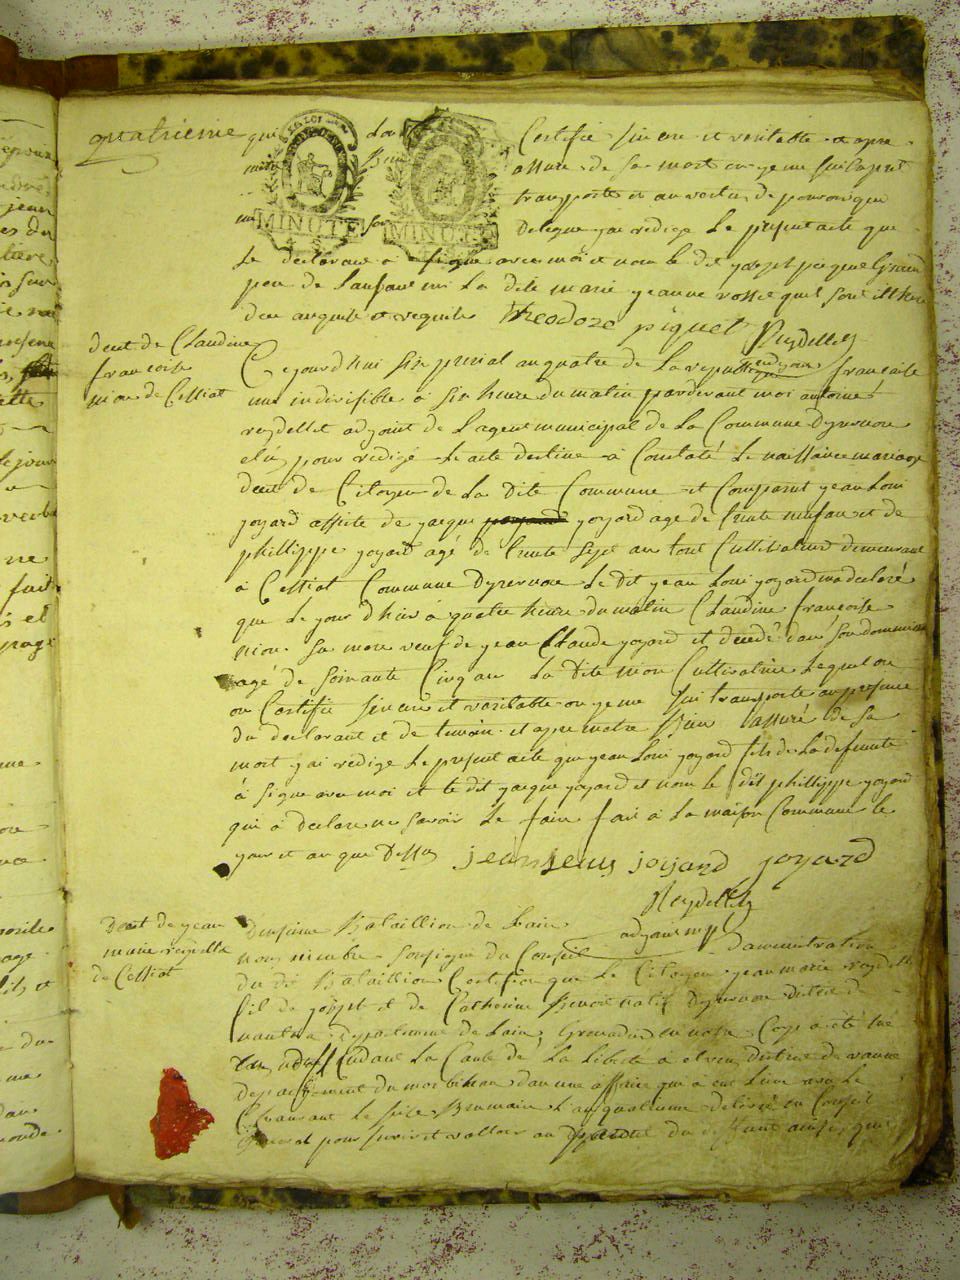 quatrieme qui
MINUTE
MINUTE
Certifie sincere et veritable et apre
assuré de sa mort en
transporté et au vertus de pouvoir qui
delegue j'ai redigé Le present acte que
Le declarant a signe avec moi et non le dit joseph piquet Grand
pere de Lanfant ni La dite marie jeanne
Theodoze piquet Reydellet
decet de Claudine
francoise
nion de Cessiat
Cejourd'hui six prerial an quatre de La republique francaise
une indivisible à six heure du matin pardevant moi antoine
reydellet adjoint de Lagent municipal de La Commune
elu pour redigé Le acte destiné à Constaté Le naissance mariage
decet de Citoyen de La dite Commune et Comparut jean Loui
joyard assité de jacque joyard age de trente neuf an et de
phillippe joyard agé de trente sept an tout Cultivateur demeurant
à Cessiat Commune Le dit jean Loui joyard ma declaré
que Le jour d'hui à quatre heure du matin Claudine françoise
nion sa mere veuf de jean Claude joyard et decedé dans son domicile
agé de soixante Cinq an La dite nion Cultivatrice
Certifie sincere et veritable transporté
du declarant et de temoin et apre mêtre Bien assuré de sa
mort j'ai redigé Le present acte que jean Loui joyard fils de La defunte
à signe avec moi et le dit jacque joyard et non le dit phillippe joyard
qui à declaré ne savoir Le faire fait à La maison Commune le
jour et an que Dessus jean Louis joyard joyard
Reydellet
adjoint
Decet de jean
marie reydellet
de Cessiat
Bataillion de Lain
nous menbre sousigne du Conseil Daministration
du dit Bataillion Certifie que Le Citoyen jean marie reydellet
fil de josept et de Catherine Benoit natif district de
nantua Departement de Lain Grenadier en notre Corp a été tué
en deffendant La Cause de La Liberté a district de vanne
departement du morbihan dans une affaire qui à eut Lieu avec Le
Chauvant Le seize Brumaire L'an quatrieme delivré en Conseil
pour servir et valloir au du